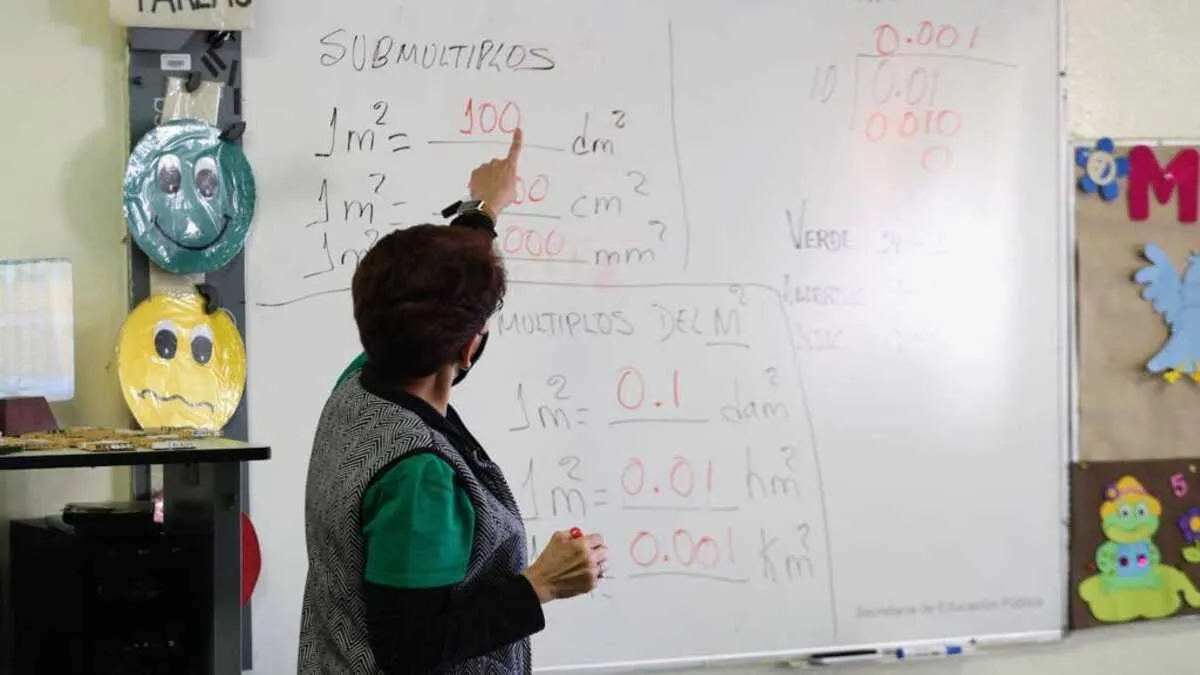 TAREAS
SUBMULTIPLOS
1m² = 100 dm²
1m² = 00 cm²
1m² 000 mm²
MULTIPLOS DEL M²
1m² = 0.1 dam²
1m² = 0.01 hm²
0.001 Km²
0.001
10 0.01
0 010
0
VERDE
Secretaría de Educación Pública
M
5